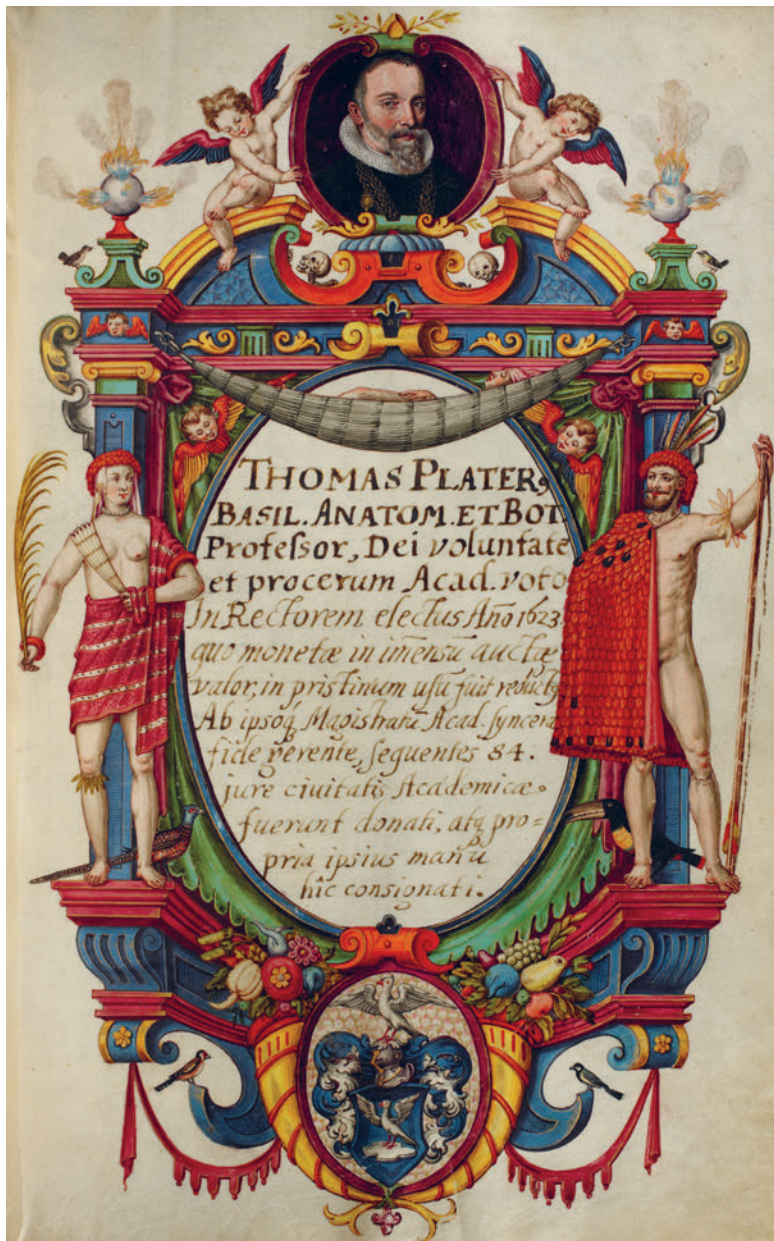 THOMAS PLATERꝰ
BASIL. ANATOM. ET BOT.
Professor, Dei voluntate
et procerum Acad. voto
In Rectorem electus Año 1623.
quo monetæ in im̃ensũ auctæ
valor, in pristinum usũ fuit reductꝰ
Ab ipsoq́ Magistratũ Acad. syncera
fide gerente, sequentes 84.
jure civitatis Academicæ
fuerunt donati, atq́ pro=
pria ipsius manu
hîc consignati.